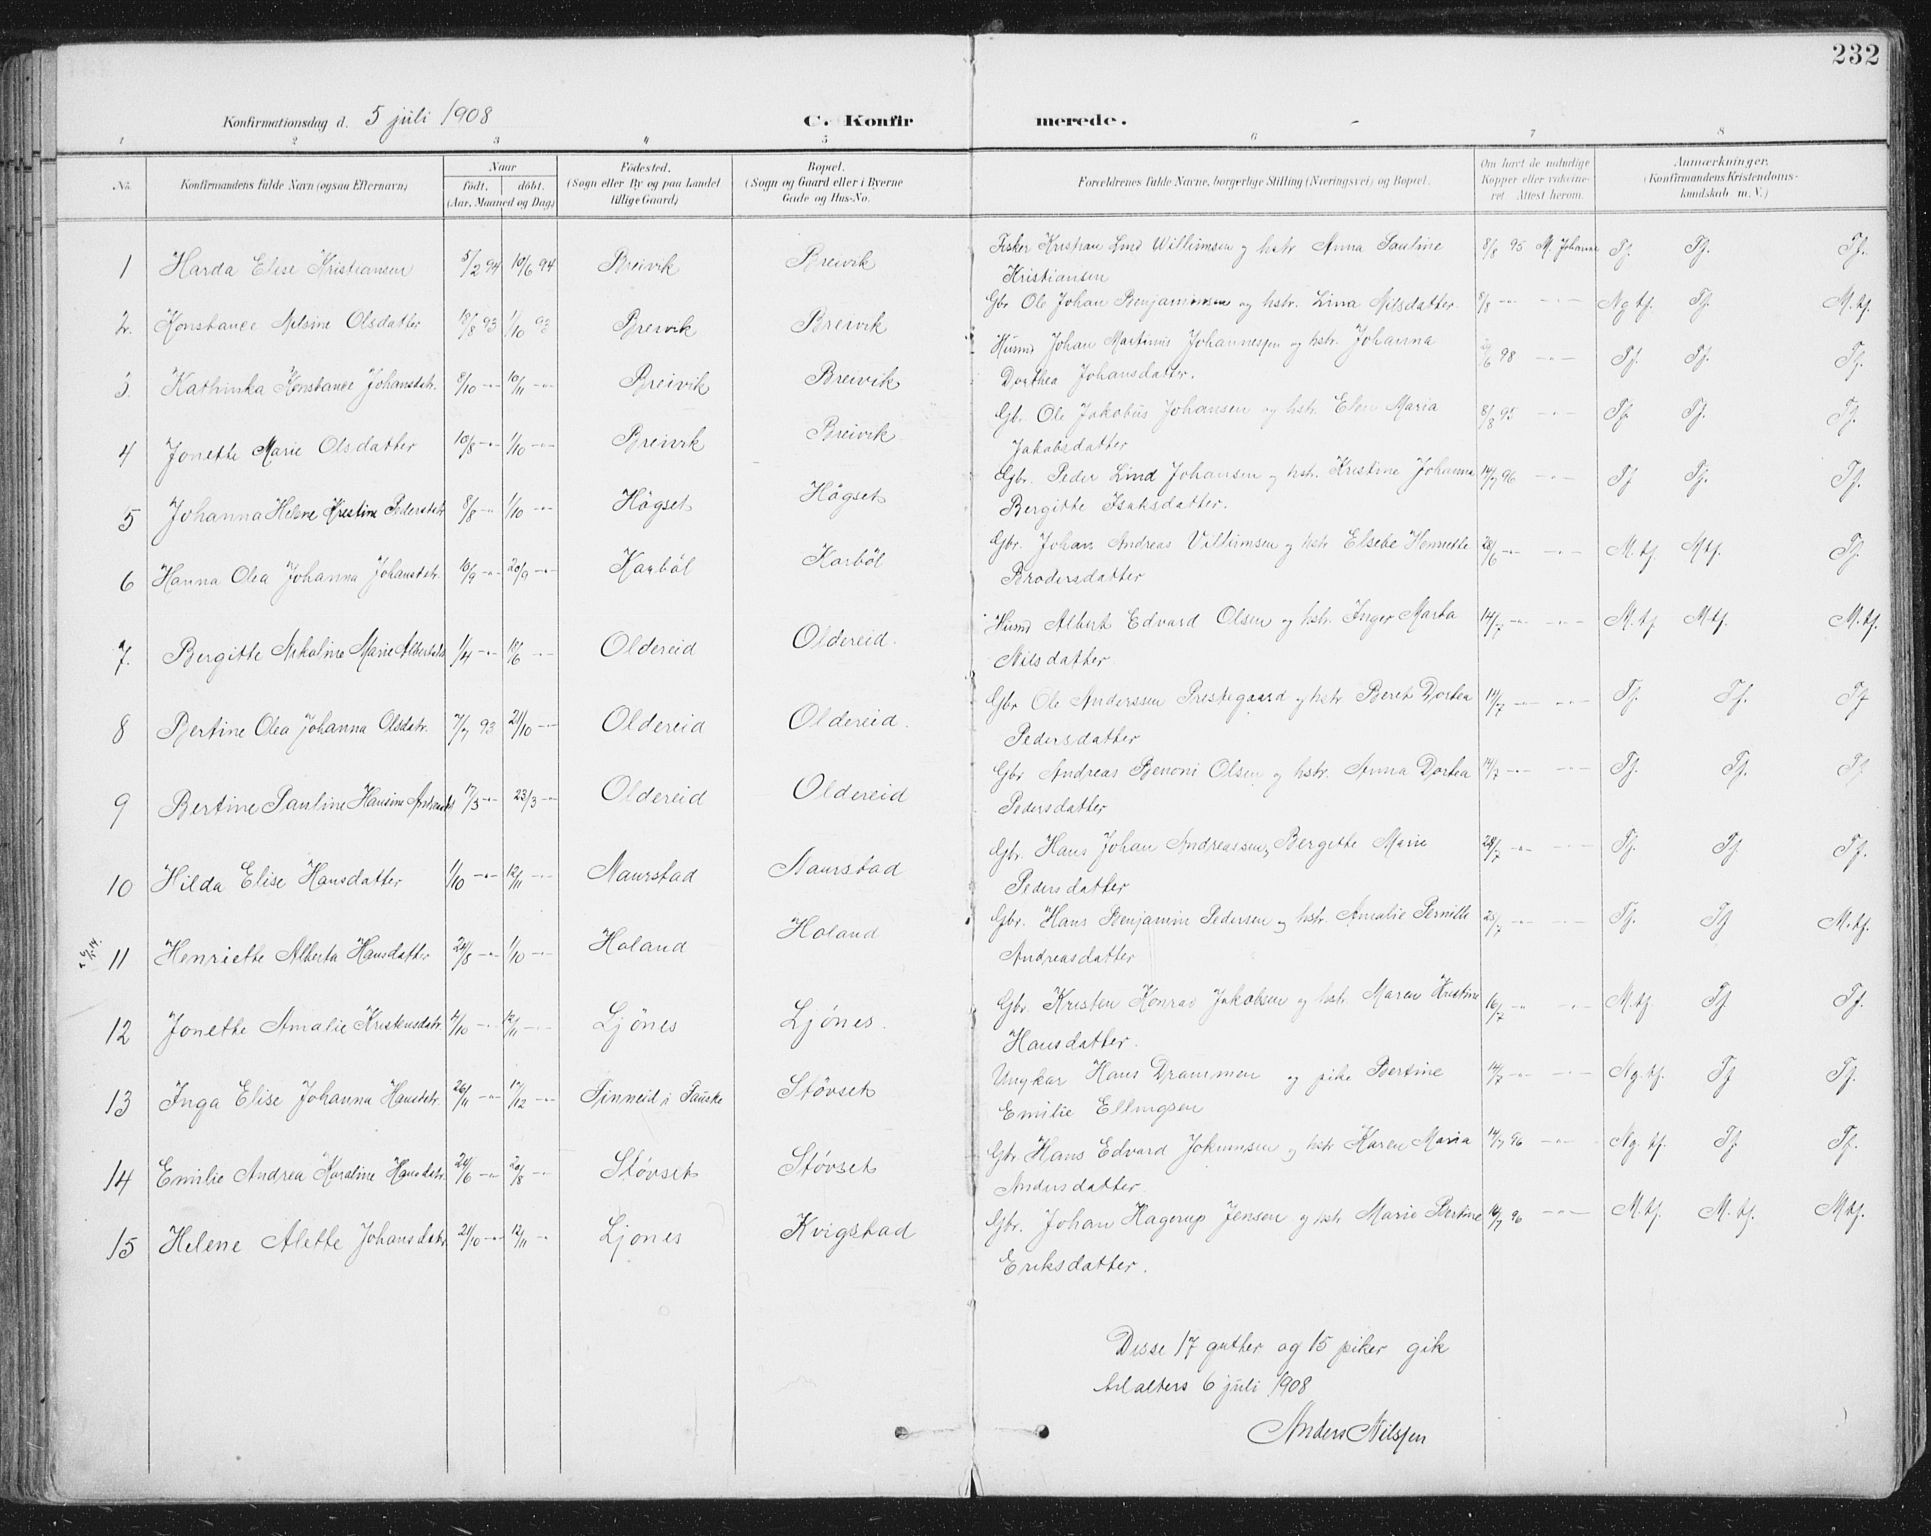 232
Konfirmationsdag d. 5 juli 1908
C. Konfirmerede.
1 2 3 4 5 6 7 8
No. Konfirmandens fulde Navn (ogsaa Efternavn) Naar født. døbt. (Aar, Maaned og Dag) Födested. (Sogn eller By og paa Landet tillige Gaard) Bopæl. (Sogn og Gaard eller i Byerne Gade og Hus-No. Forældrenes fulde Navne, borgerlige Stilling (Næringsvei) og Bopæl. Om havt de naturlige Kopper eller vakcineret Attest herom. Anmærkninger. (Konfirmandens Kristendomskundskab m. V.)
1 Harda Elise Kristiansen 5/2 94 10/6 94 Breivik Breivik Fisker Kristian Lind Willumsen og hstr Anna Pauline 8/8 95 M. Johanne Tf. Tf. Tf.
Kristiansen
2. Konstance Nilsine Olsdatter 18/8 93 1/10 93 Breivik Breivik Gbr Ole Johan Benjaminsen og hstr. Lina Nilsdatter. 8/8 -"- -"- Ng tf. Tf. M.tf.
3. Kathinka Konstance Johansdtr. 8/10 -"- 10/11 -"- Breivik Breivik Husmd Johan Martinus Johannessen og hstr. Johanna /6 98 -"- Tf. Tf. Tf.
Dorthea Johansdatter.
4 Jonette Marie Olsdatter 10/8 -"- 1/10 -"- Breivik Breivik Gbr. Ole Jakobus Johansen og hstr. Elen Maria 8/8 95 -"- Tf. Tf. Tf.
Jakobsdatter
5 Johanna Helene Kristine Pedersdtr 8/8 -"- 1/10 -"- Högset Högset Gbr. Peder Lind Johansen og hstr. Kristine Johanna 14/7 96 -"- Tf Tf. Tf.
Bergitte Isaksdatter.
6 Hanna Olea Johanna Johansdtr. 10/9 -"- 20/9 -"- Karböl Karböl Gbr. Johan Andreas Villumsen og hstr Elsebe Henriette 28/6 -"- -"- M.tf. Mtf. Tf.
Brodersdatter
7. Bergitte Nikoline Marie Albertsdtr 1/4 -"- 18/6 -"- Oldereid Oldereid. Husmd Albert Edvard Olsen og hstr. Inger Marta 14/7 -"- -"- M.tf M.tf. M.tf.
Nilsdatter.
8 Bertine Olea Johanna Olsdtr. 7/7 93 21/10 -"- Oldereid Oldereid. Gbr Ole Anderssen Prestegaard og hstr Beret Dortea 14/7 -"- -"- Tf. Tf. Tf
Pedersdatter
9 Bertine Pauline Hansine Andreasdt 17/3 -"- 23/3 -"- Oldereid Oldereid Gbr Andreas Benoni Olsen og hstr. Anna Dortea 14/7 -"- -"- Tf. Tf. Tf
Pedersdatter
10 Hilda Elise Hansdatter 1/10 -"- 12/11 -"- Naurstad Naurstad Gbr. Hans Johan Andreassen, Bergitte Marie 28/7 -"- -"- Tf. Tf. Tf.
Pedersdatter
11 Henriette Alberta Hansdatter 24/8 -"- 1/10 -"- Holand Holand Gbr. Hans Benjamin Pedersen og hstr. Amalie Pernille 23/7 -"- -"- Tf. Tf M.tf.
Andreasdatter
12 Jonette Amalie Kristensdtr. /10 -"- 12/11 -"- Ljönes Ljönes. Gbr Kristen Konrad Jakobsen og hstr. Maren Kristine 16/7 -"- -"- M.tf Tf Tf.
Hansdatter.
13 Inga Elise Johanna Hansdtr. 26/11 -"- 17/12 -"- Finneid i Fauske Stövset Ungkar Hans Drammen og pike Bertine 14/7 -"- -"- Ng.tf. Tf Tf.
Emilie Ellingsen
14 Emilie Andrea Karoline Hansdtr. 24/6 -"- 2/8 -"- Stövset Stövset Gbr Hans Edvard Jokumsen og hstr Karen Maria 14/7 96 -"- Ng. tf. Tf Tf.
Andersdatter
15 Helene Alette Johansdatr 21/10 -"- 12/11 -"- Ljönes Kvigstad Gbr. Johan Hagerup Jensen og hstr Marie Bertine 14/7 96 -"- M.tf. M.tf. Mtf.
Eriksdatter.
Disse 17 gutter og 15 piker gik
til alters 6 juli 1908
Anders Nilssen